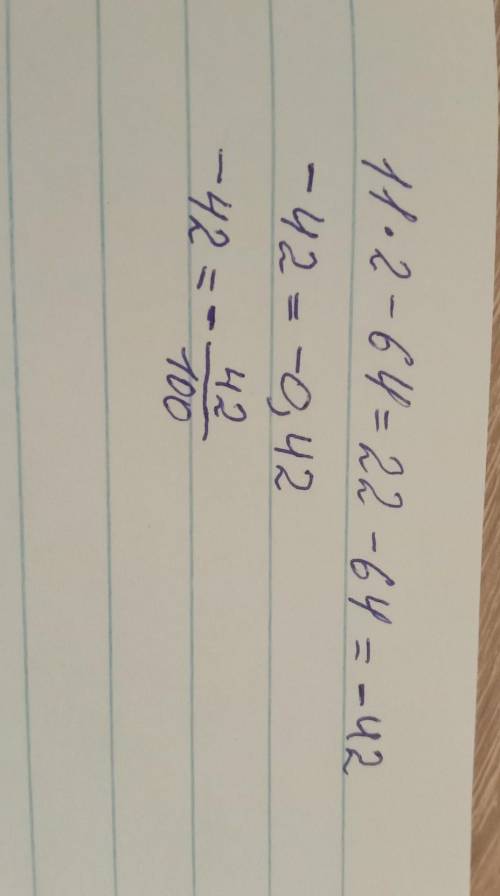 11·2-64=22-64=-42
-42=-0,42
-42=-42/100